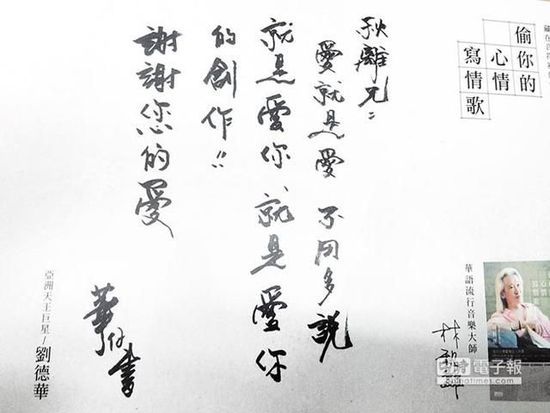 偷你的
心情
寫情歌
華語流行音樂大師
林秋離
秋離兄:
愛就是愛 不用多說
就是愛你 就是愛你
的創作!!
謝謝您的愛
華仔書
亞洲天王巨星/劉德華
電子報
chinatimes.com